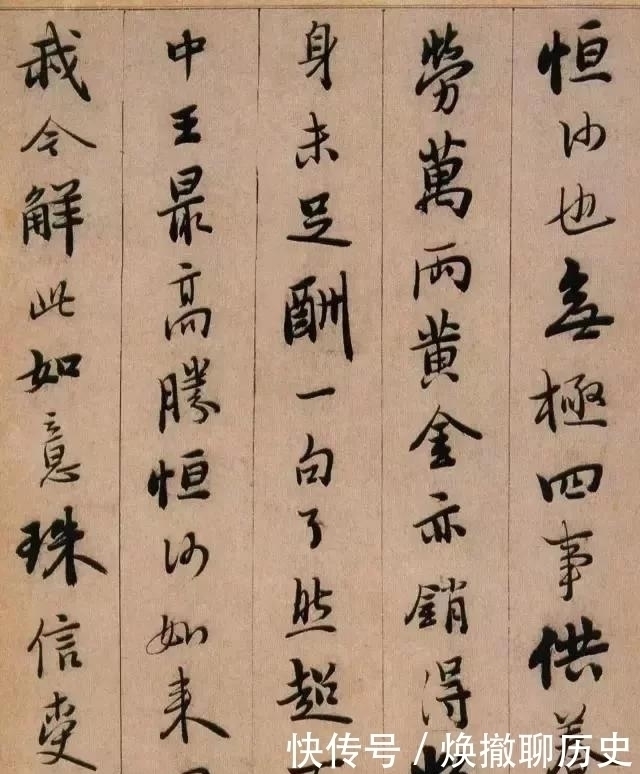 恒沙也無極四事供
勞萬兩黃金亦銷得
身未足酬一句了然超
中王最高勝恒沙如來
我今解此如意珠信受
快传号/焕撤聊历史